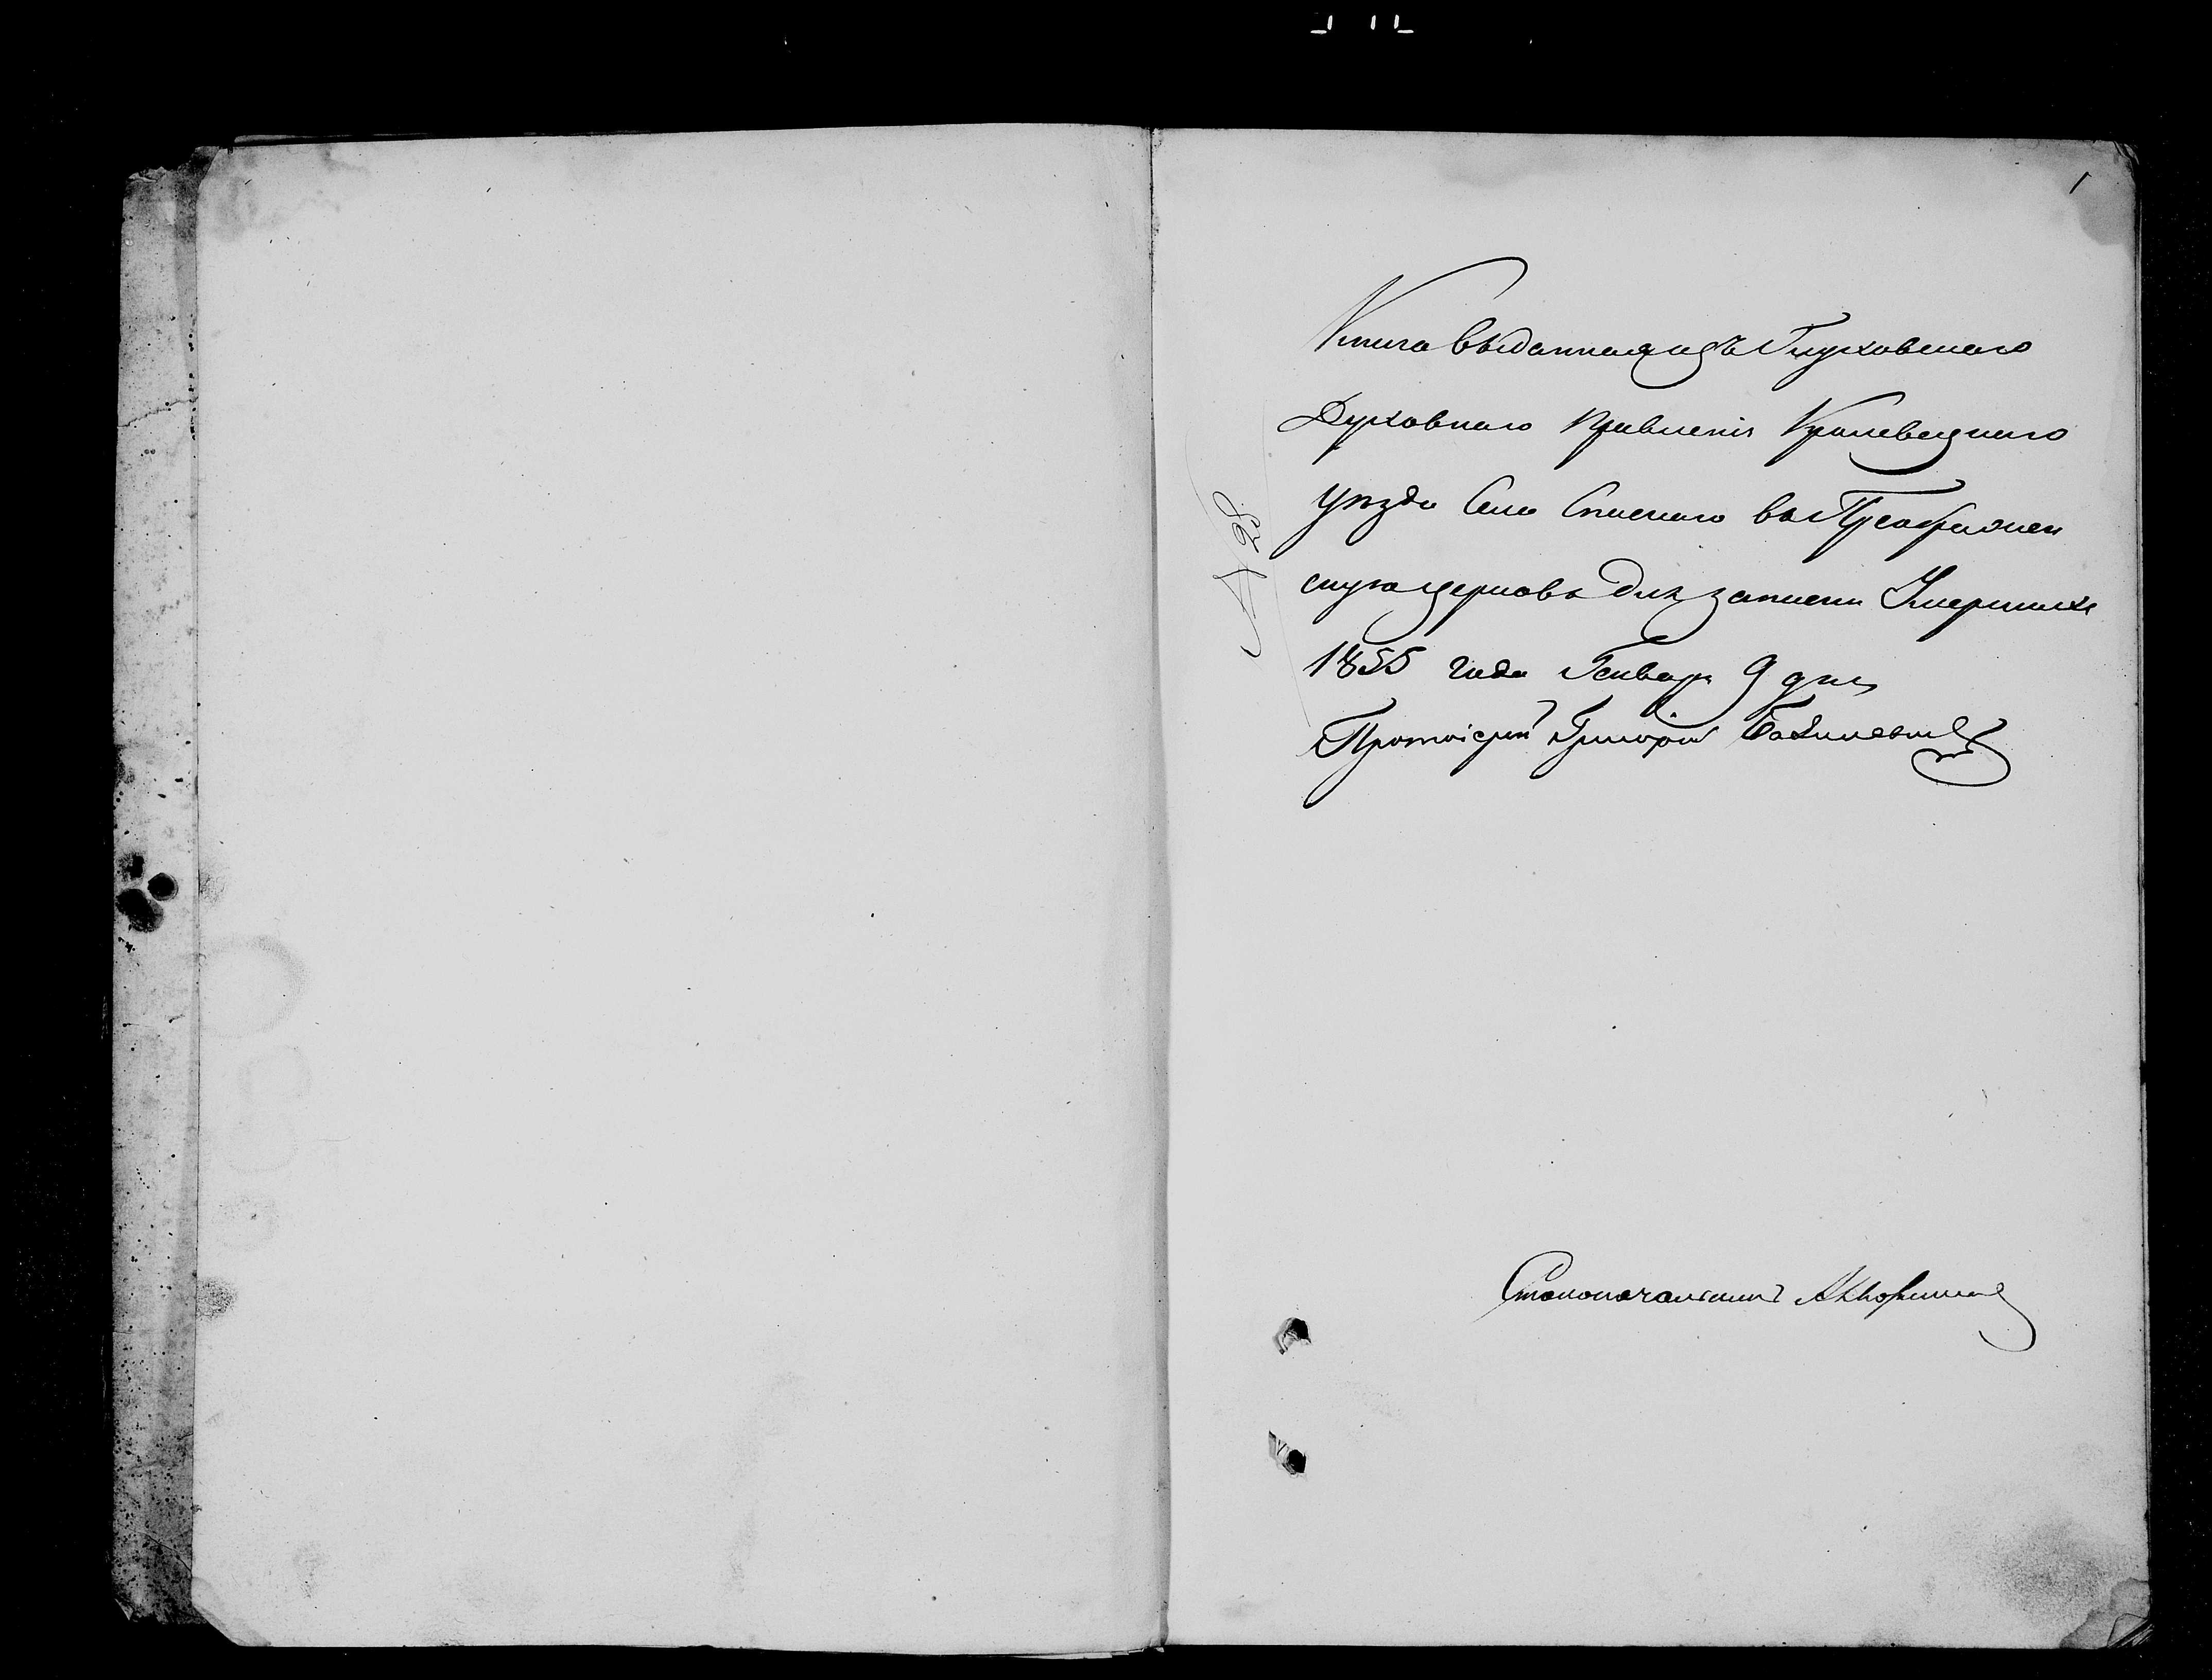 1
Книга выданная изъ Глуховскаго
Духовнаго Правленія Кролевецкаго
уѣзда Села Спаскаго въ Преображен
скую церковь для записки Умершихъ
1855 года Генваря 9 дня
Протоіерей Григорій
№ 28.
Столоначальникъ